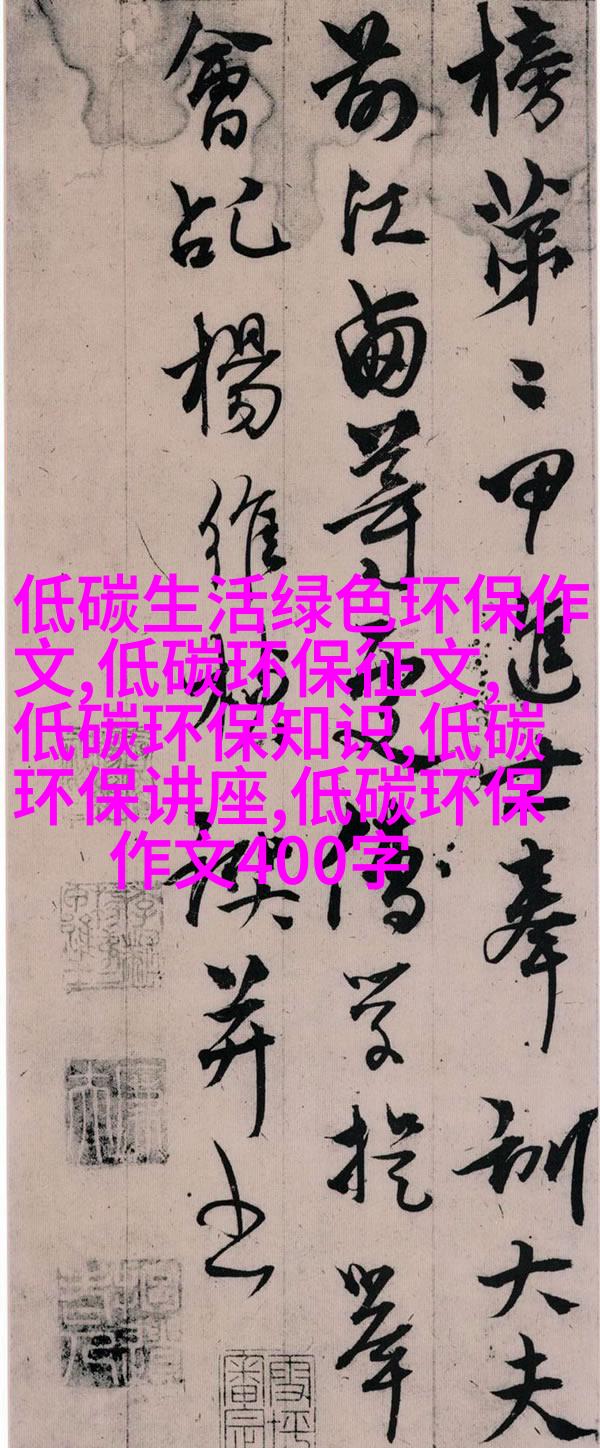 榜第二甲進士奉訓大夫
前江西等處儒學提舉
會稽楊維禎譔并书
低碳生活绿色环保作
文,低碳环保征文,
低碳环保知识,低碳
环保讲座,低碳环保
作文400字